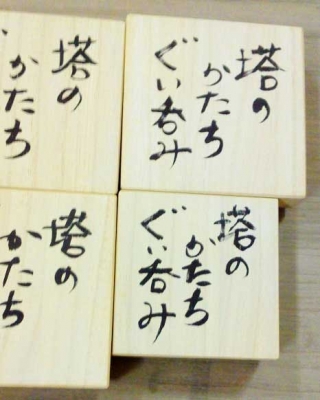 塔の
かたち
ぐい呑み
塔の
かたち
塔の
かたち
ぐい呑み
塔の
かたち